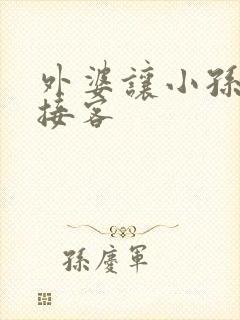 外婆讓小孫
接客
孫慶軍